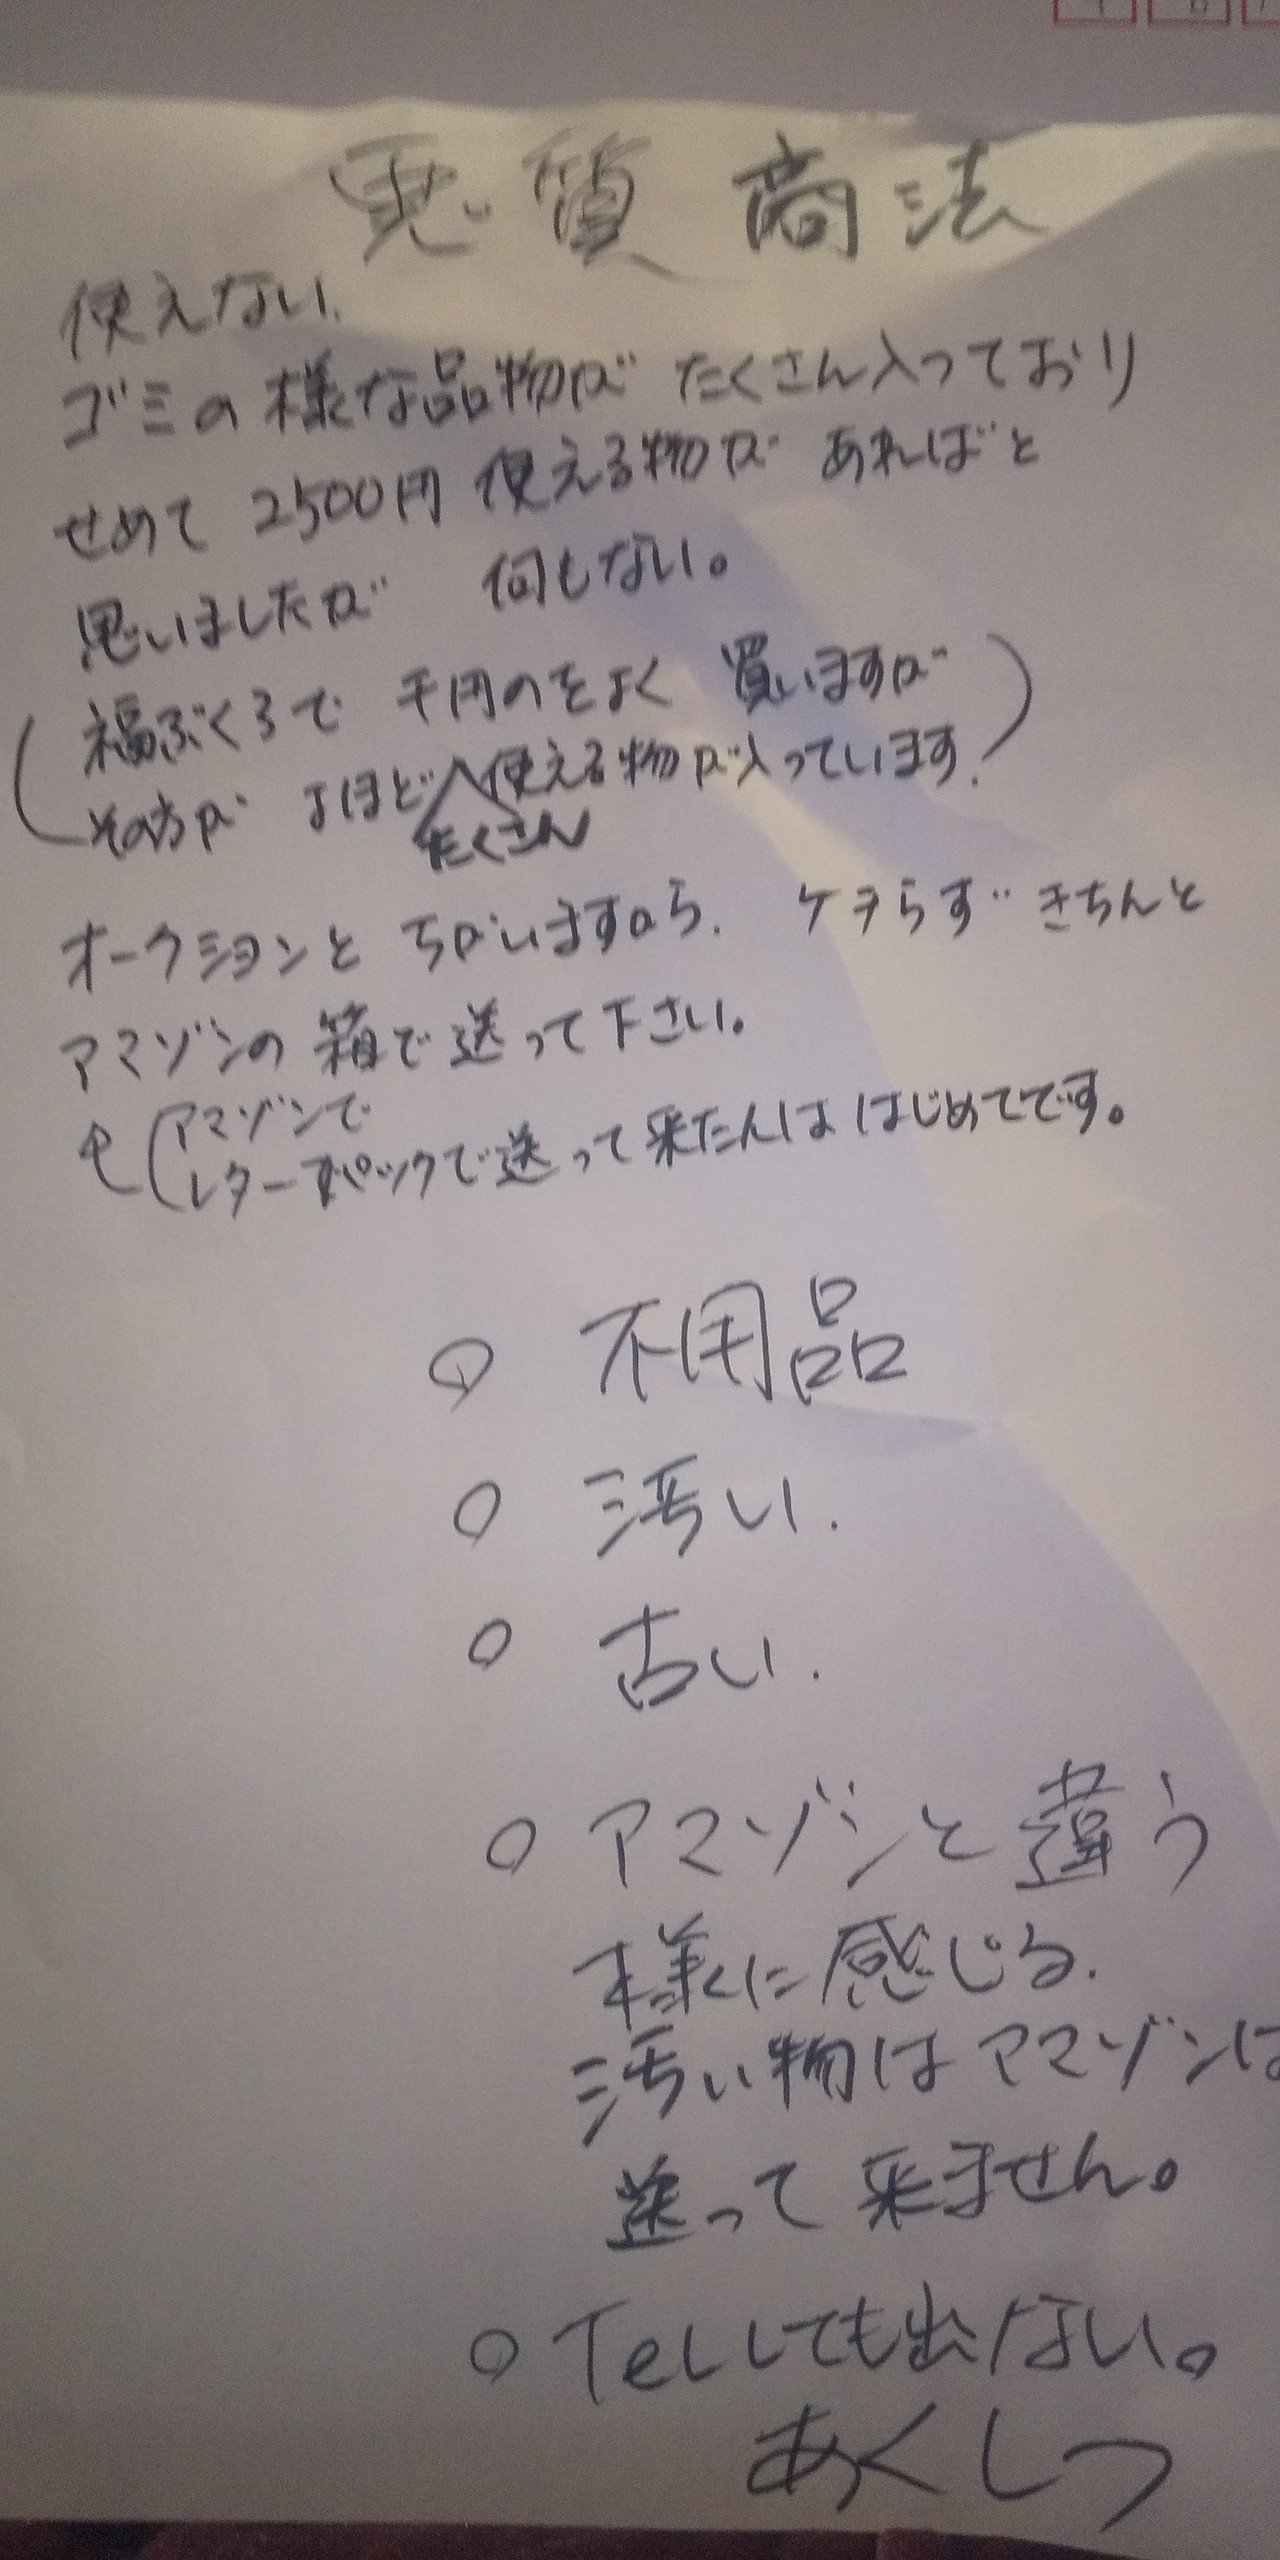 悪質商法
使えない.
ゴミの様な品物が たくさん入っており
せめて 2500円 使える物が あればと
思いましたが 何もない。
(福ぶくろで 千円のをよく 買いますが
その方が よほど たくさん 使える物が入っています.)
オークションと ちがいますから. ケチらず きちんと
アマゾンの箱で送って下さい。
(アマゾンで
レターパックで送って来たんは はじめてです。
○ 不用品
○ 汚い.
○ 古い.
○ アマゾンと違う
様に感じる.
汚い物はアマゾンは
送って来ません。
○ Telしても出ない。
あくしつ